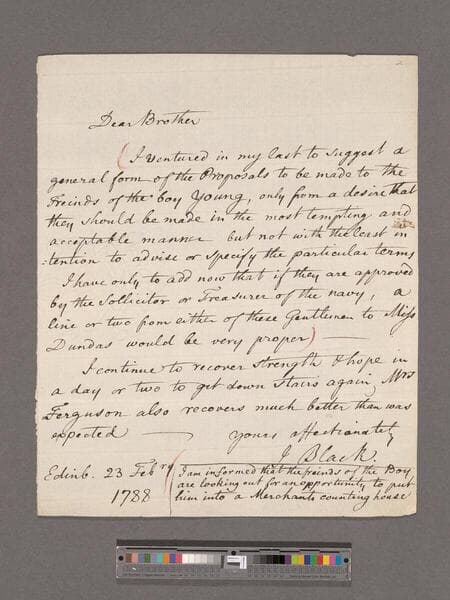 2
Dear Brother
(I ventured in my last to suggest a
general form of the Proposals to be made to the
Freinds of the boy Young, only from a desire that
they should be made in the most tempting and
acceptable manner but not with the least in
:tention to advise or specify the particular terms
I have only to add now that if they are approved
by the Sollicitor or Treasurer of the navy, a
line or two from either of these Gentlemen to Miss
Dundas would be very proper) —
I continue to recover strength & hope in
a day or two to get down stairs again, Mrs
Ferguson also recovers much better than was
expected — yours affectionately
J Black.
Edinb. 23 Febry
1788
(I am informed that the freinds of the Boy
are looking out for an opportunity to put
him into a Merchants counting house